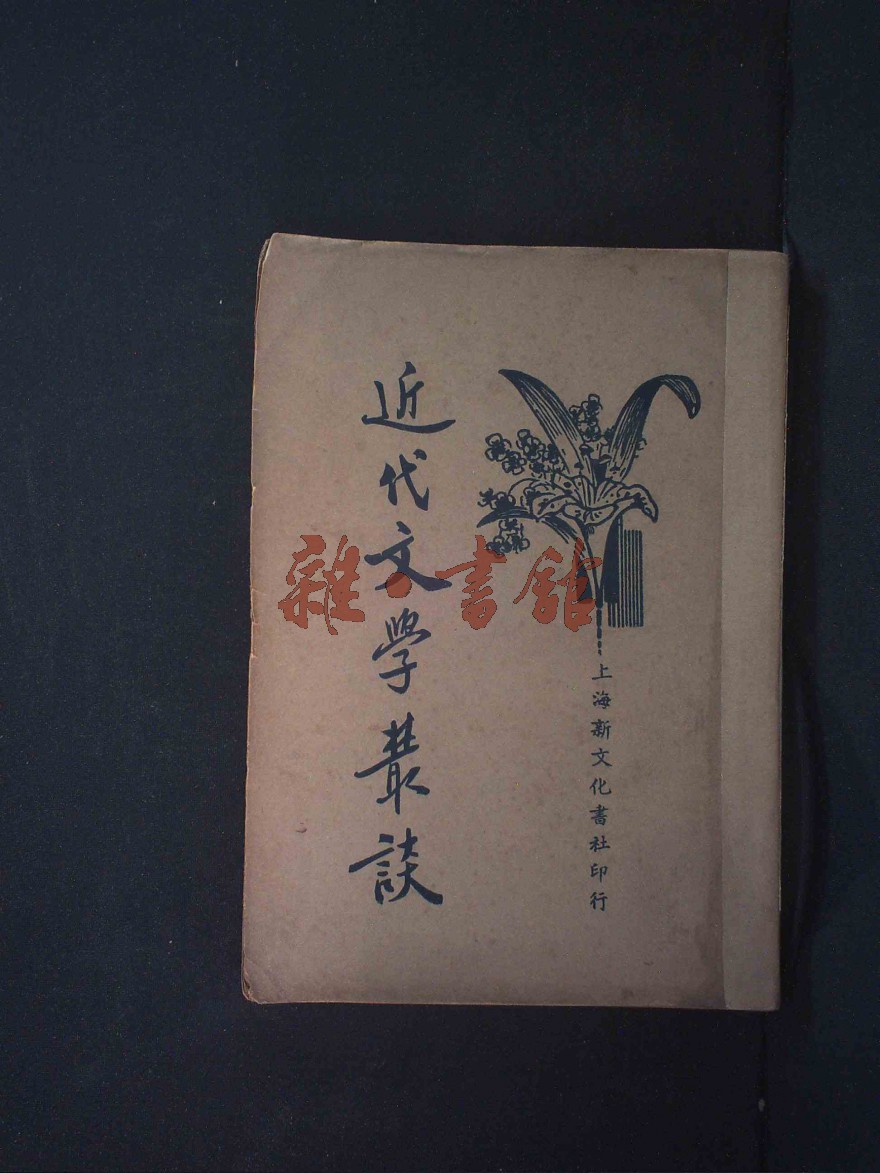 近代文學叢談
上海新文化書社印行
雜·書館